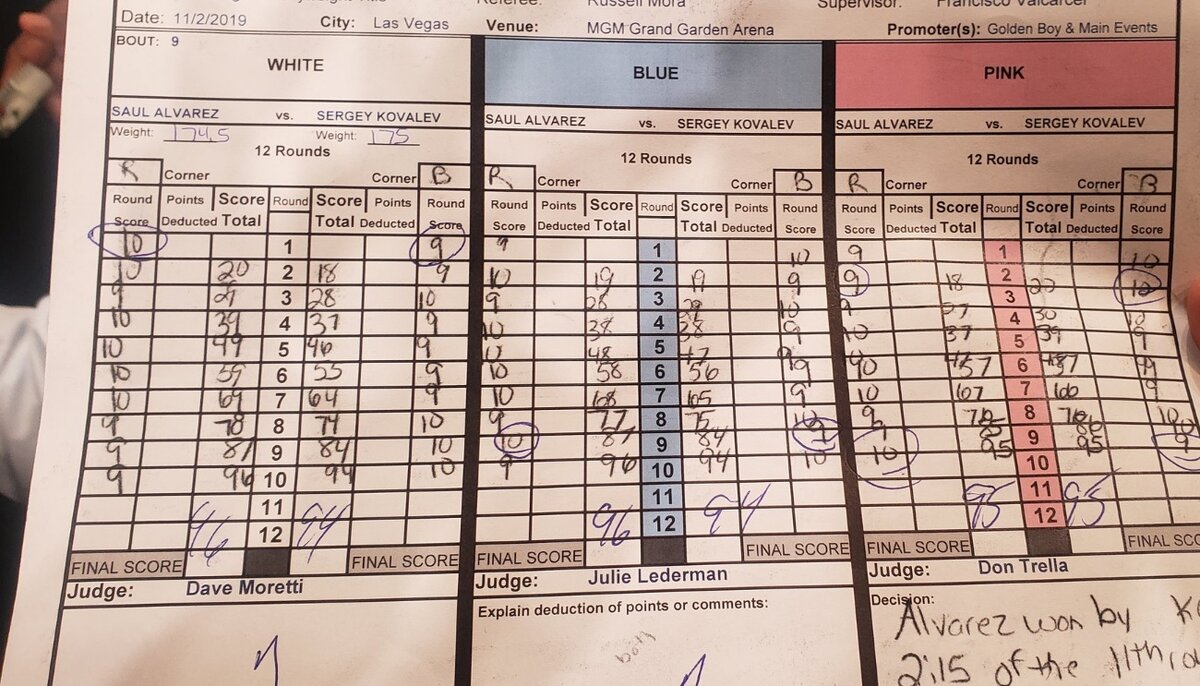 Referee: Russell Mora Supervisor: Francisco Valcarcel
Date: 11/2/2019 City: Las Vegas Venue: MGM Grand Garden Arena Promoter(s): Golden Boy & Main Events
BOUT: 9
WHITE BLUE PINK
SAUL ALVAREZ vs. SERGEY KOVALEV SAUL ALVAREZ vs. SERGEY KOVALEV SAUL ALVAREZ vs. SERGEY KOVALEV
Weight: 174.5 Weight: 175
12 Rounds 12 Rounds 12 Rounds
R Corner Corner B R Corner Corner B R Corner Corner B
Round Points Score Round Score Points Round Round Points Score Round Score Points Round Round Points Score Round Score Points Round
Score Deducted Total Total Deducted Score Score Deducted Total Total Deducted Score Score Deducted Total Total Deducted Score
10 1 9 9 1 10 9 1 10
10 20 2 18 9 10 19 2 19 9 9 18 2 20 10
9 29 3 28 10 9 28 3 29 10 9 27 3 30 10
10 39 4 37 9 10 38 4 38 9 10 37 4 39 9
10 49 5 46 9 10 48 5 47 9 5
10 59 6 55 9 10 58 6 56 9 57 6 57 9
10 69 7 64 9 10 68 7 65 9 10 67 7 66 9
9 78 8 74 10 9 77 8 75 10 9 76 8 76 10
9 87 9 84 10 10 87 9 84 9 9 85 9 86 10
9 96 10 94 10 9 96 10 94 10 10 95 10 95 9
11 11 11
96 12 94 96 12 94 95 12 95
FINAL SCORE FINAL SCORE FINAL SCORE FINAL SCORE FINAL SCORE FINAL SCO
Judge: Dave Moretti Judge: Julie Lederman Judge: Don Trella
Explain deduction of points or comments: Decision:
Alvarez won by K
2:15 of the 11th ro